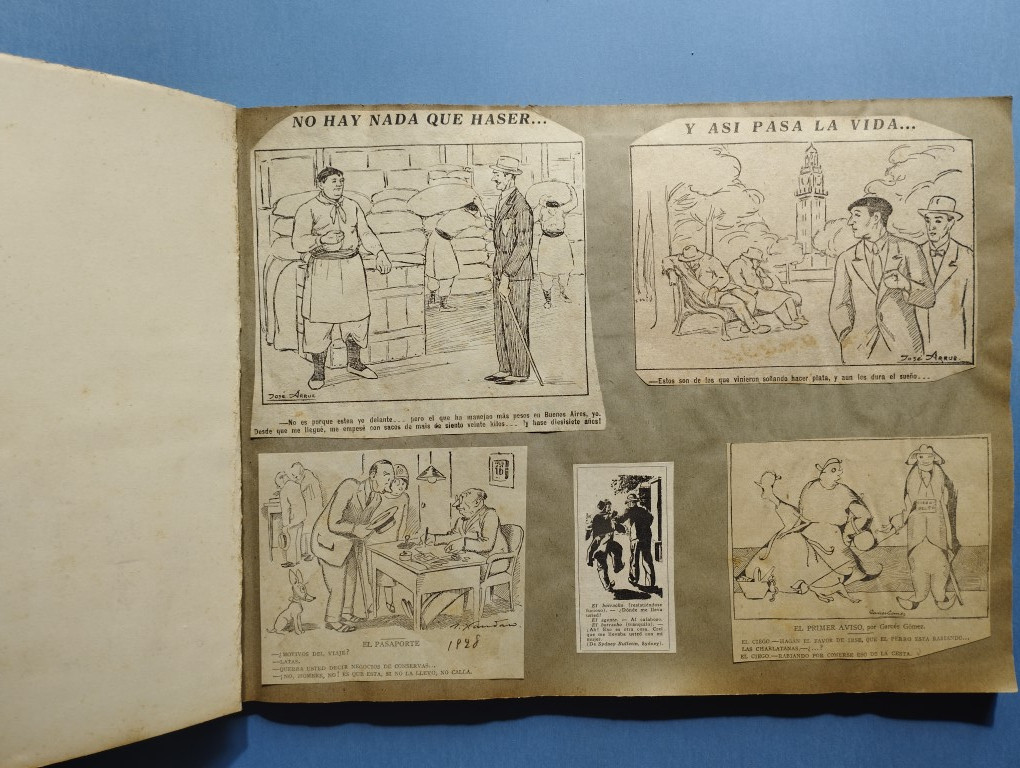 NO HAY NADA QUE HASER...
JOSE ARRUE
—No es porque estea yo delante... pero el que ha manejao más pesos en Buenos Aires, yo.
Desde que me llegué, me empesé con sacos de mais de siento veinte kilos... ¡y hase diesisiete años!
Y ASI PASA LA VIDA...
JOSE ARRUE
—Estos son de los que vinieron soñando hacer plata, y aun les dura el sueño...
16
EL PASAPORTE
1928
—¿MOTIVOS DEL VIAJE?
—LATAS.
—QUERRA USTED DECIR NEGOCIOS DE CONSERVAS...
—¡NO, HOMBRE, NO! ES QUE ESTA, SI NO LA LLEVO, NO CALLA.
El borracho (
).—¿Dónde me lleva
usted?
El agente. — Al calabozo.
El borracho (tranquilo). —
¡Ah! Eso es otra cosa. Creí
que me llevaba usted con mi
mujer.
(De Sydney Bulletin, Sydney).
EL PRIMER AVISO, por Garcés Gómez.
EL CIEGO.—HAGAN EL FAVOR DE IRSE, QUE EL PERRO ESTA RABIANDO...
LAS CHARLATANAS.—¿...?
EL CIEGO.—RABIANDO POR COMERSE ESO DE LA CESTA.